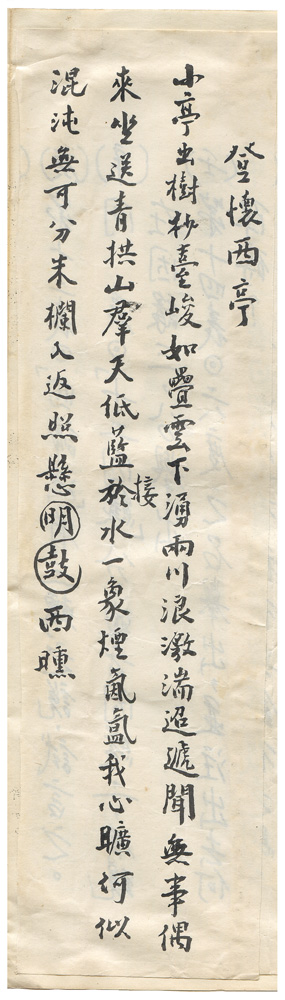 登懷西亭
小亭出樹杪臺峻如疊雲下湧兩川浪激湍迢遞聞無事偶
來坐送青拱山羣天低藍於水一象煙氤氳我心曠何似
接
混沌無可分朱欄入返照懸明鼓西曛